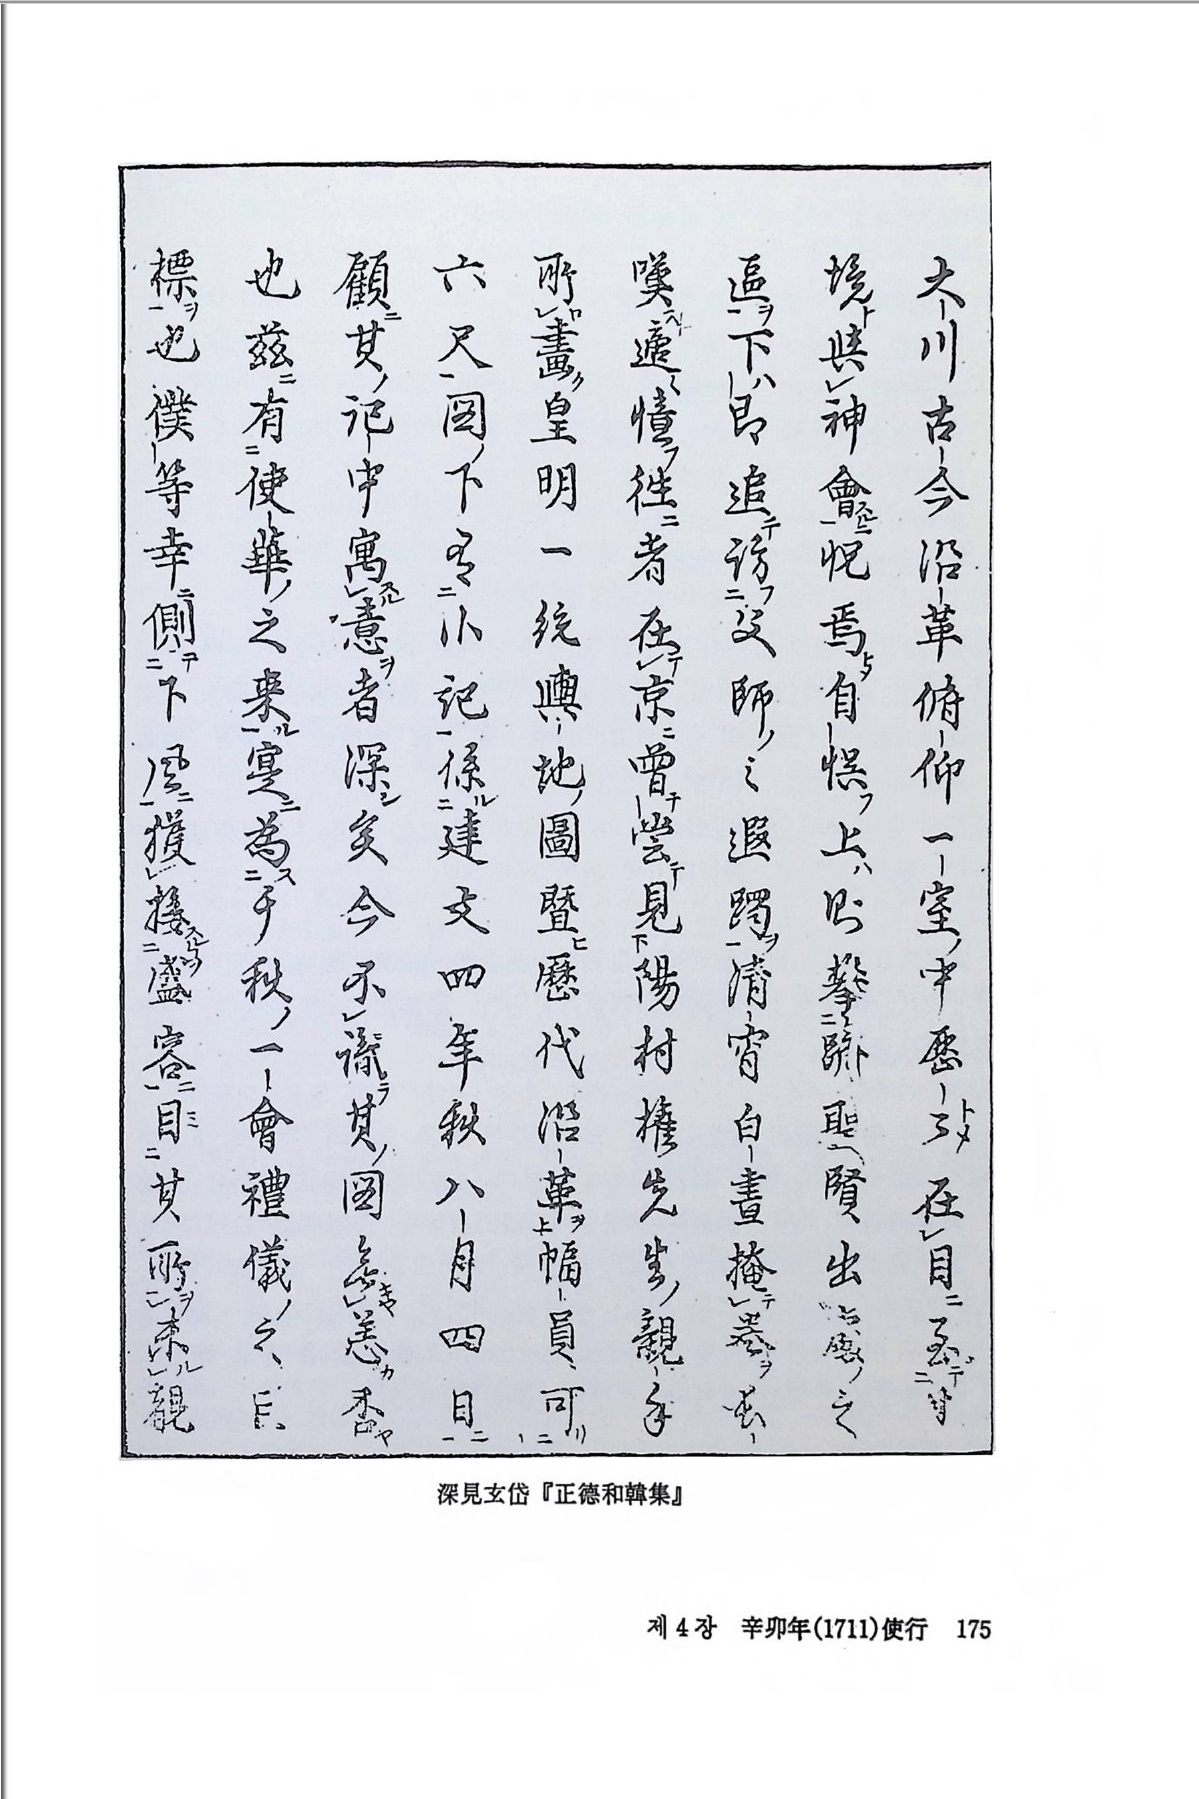 大川古今沿革俯仰一室中歷々在目至
境與神會怳焉自悞上則攀躋聖賢出處之
區下即追訪父師之遐躅清宵白晝掩卷長
嘆遙憶往者在京曽嘗見陽村權先生親手
所畫皇明一統輿地圖暨歷代沿革幅員可
六尺図下有小記係建文四年秋八月四日
顧其記中寓意者深矣今不識其図無恙否
也茲有使華之来寔為千秋一會禮儀之
標也僕等幸側下風獲接盛容目其所未親
深見玄岱『正德和韓集』
제 4 장 辛卯年(1711)使行 175